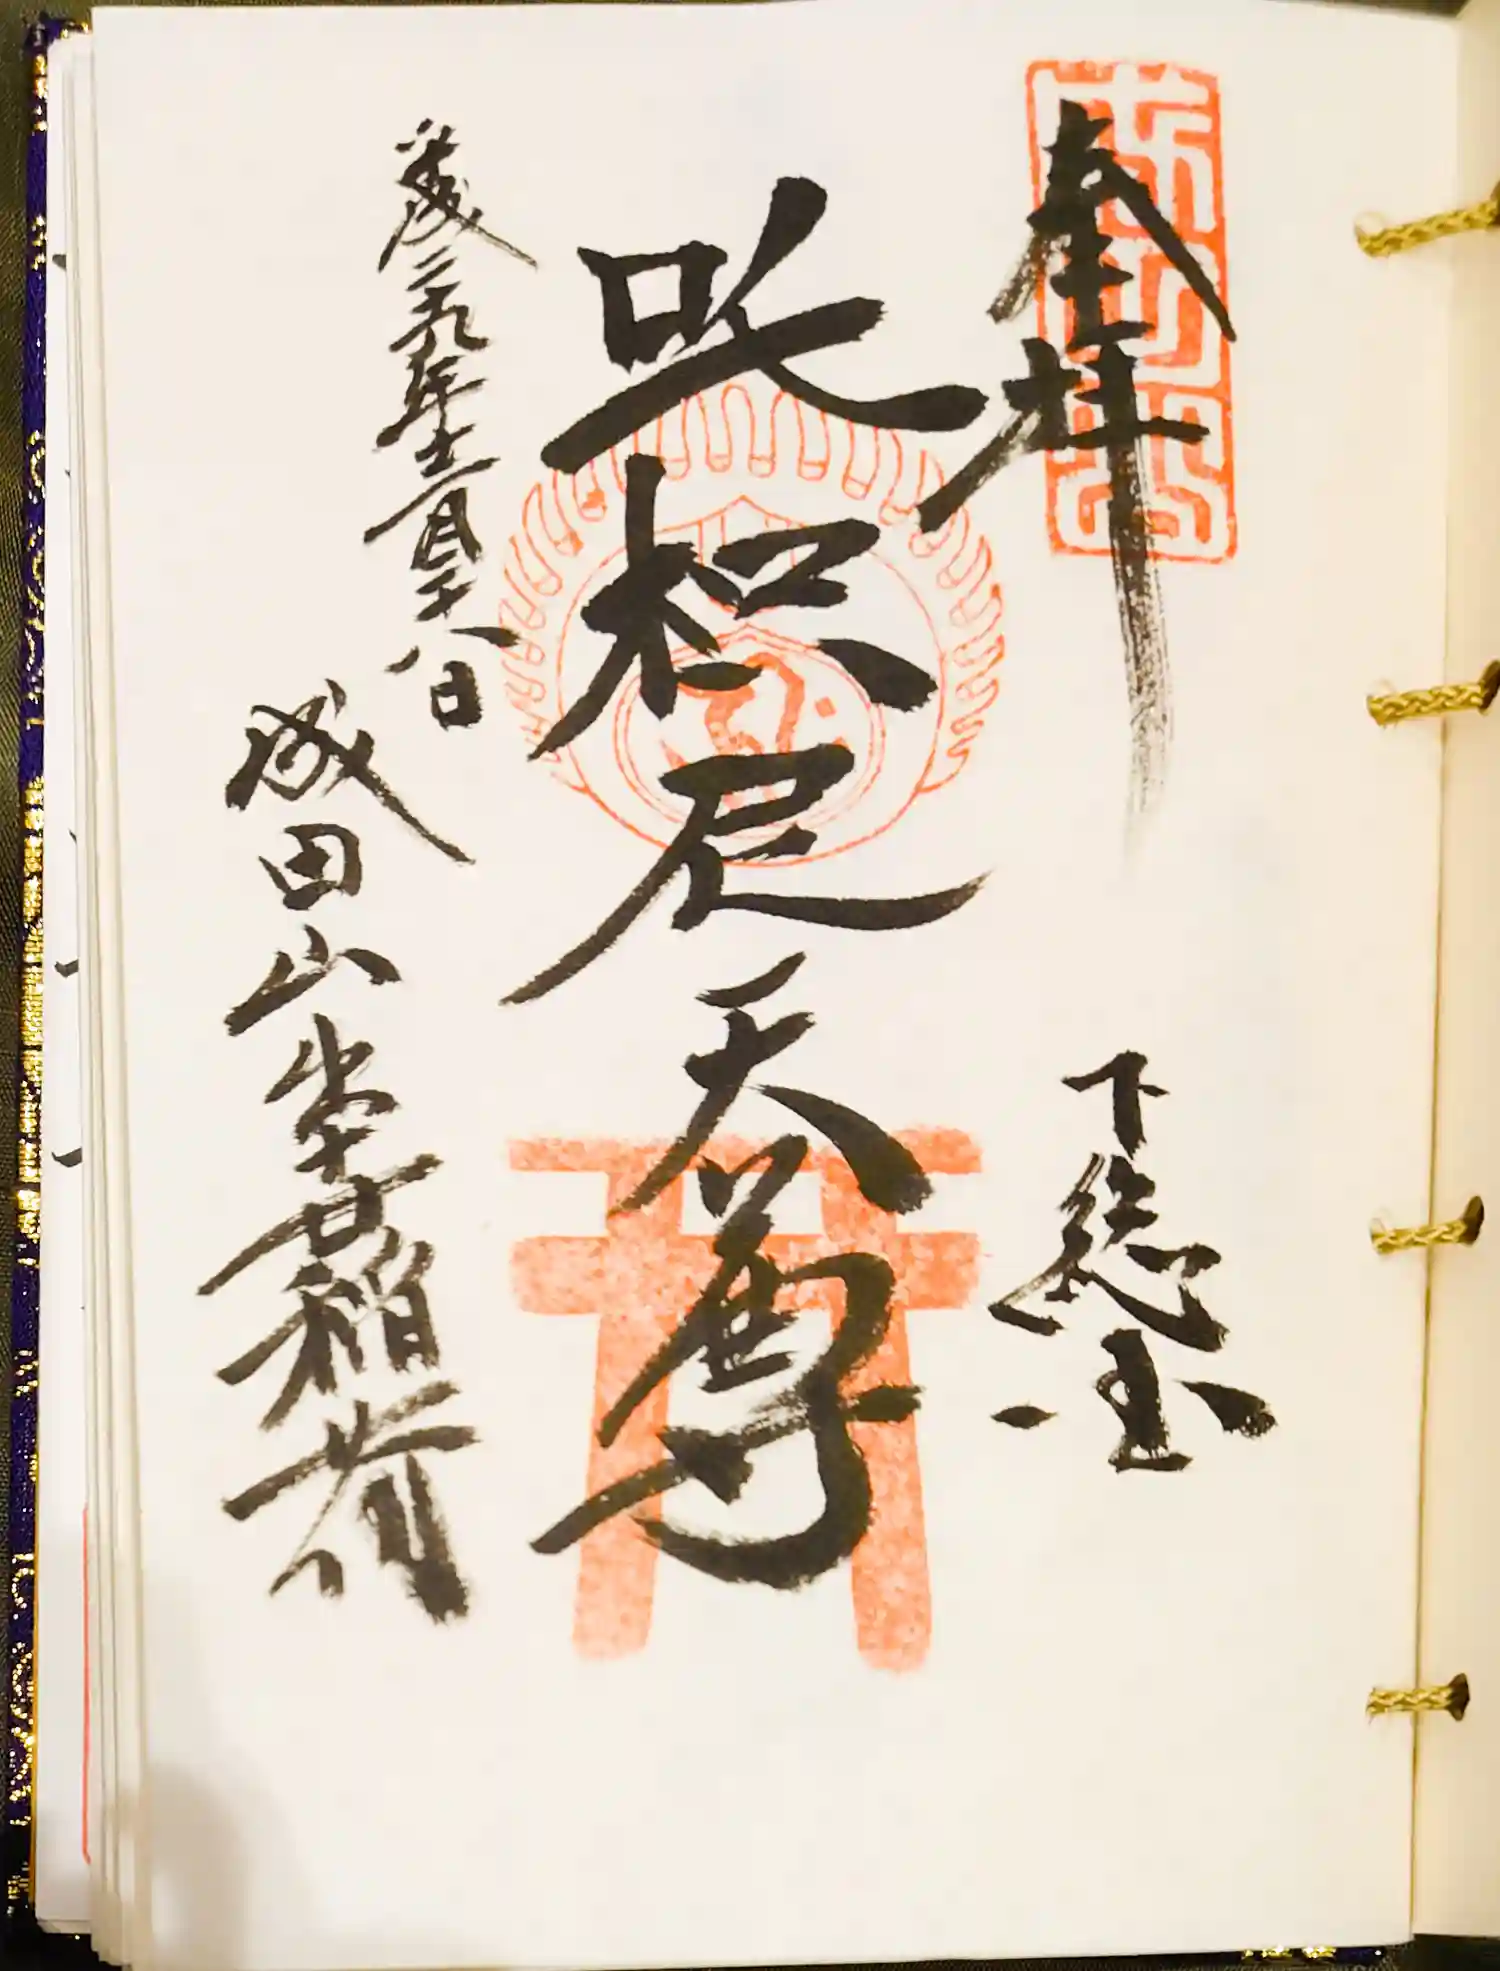 奉拝
下総国
吒枳尼天尊
平成二十九年十二月二十八日
成田山出世稲荷